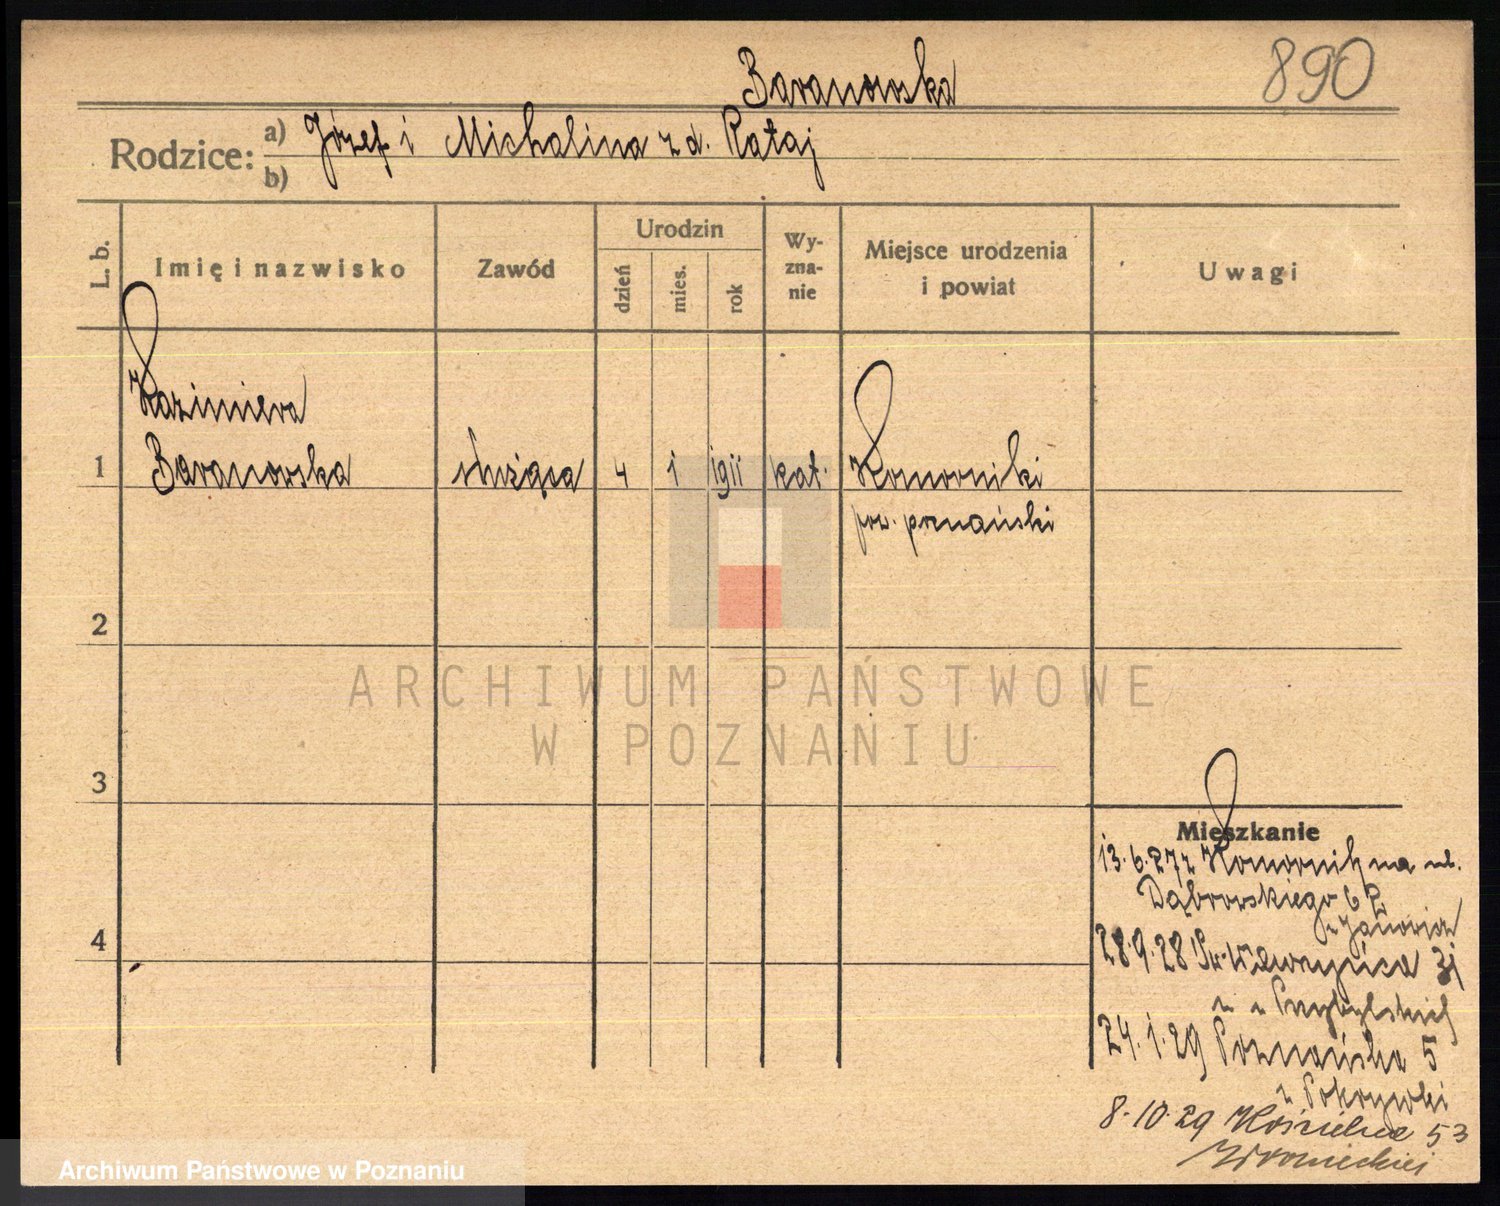 Baranowska
890
Rodzice:
a) Józef i Michalina z d. Rataj
b)
L. b.
Imię i nazwisko
Zawód
Urodzin
dzień
mies.
rok
Wy-
zna-
nie
Miejsce urodzenia
i powiat
Uwagi
Kazimiera
1 Baranowska służąca 4 1 1911 kat. Komorniki
pow. poznański
2
3
4
Mieszkanie
13.6.27 z Komornik na ul.
Dąbrowskiego
28.9.28 Św. Wawrzyńca 31
u Przybylskich
24.1.29 Poznańska 5
u Pokrywki
8.10.29 Kościelna 53
ARCHIWUM PAŃSTWOWE
W POZNANIU
Archiwum Państwowe w Poznaniu